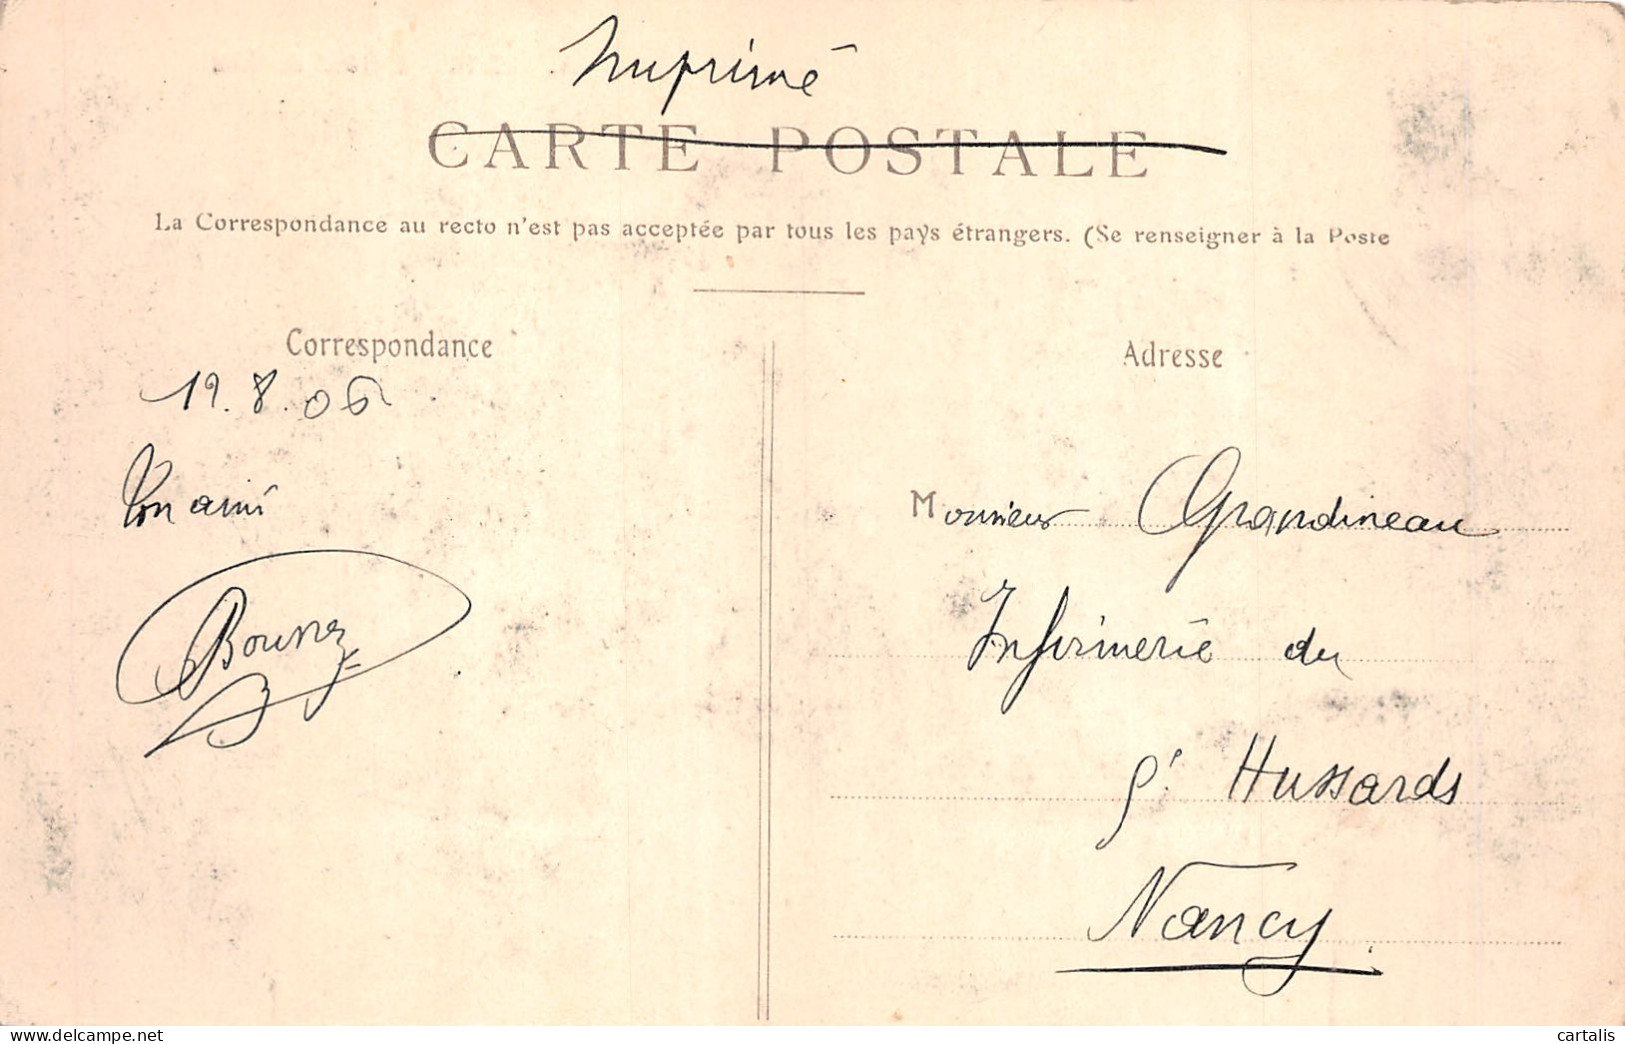 Imprimé
CARTE POSTALE
La Correspondance au recto n'est pas acceptée par tous les pays étrangers. (Se renseigner à la Poste
Correspondance
19.8.06
Ton ami
Adresse
Monsieur Grandineau
Infirmerie du
Hussards
Nancy.
cartalis